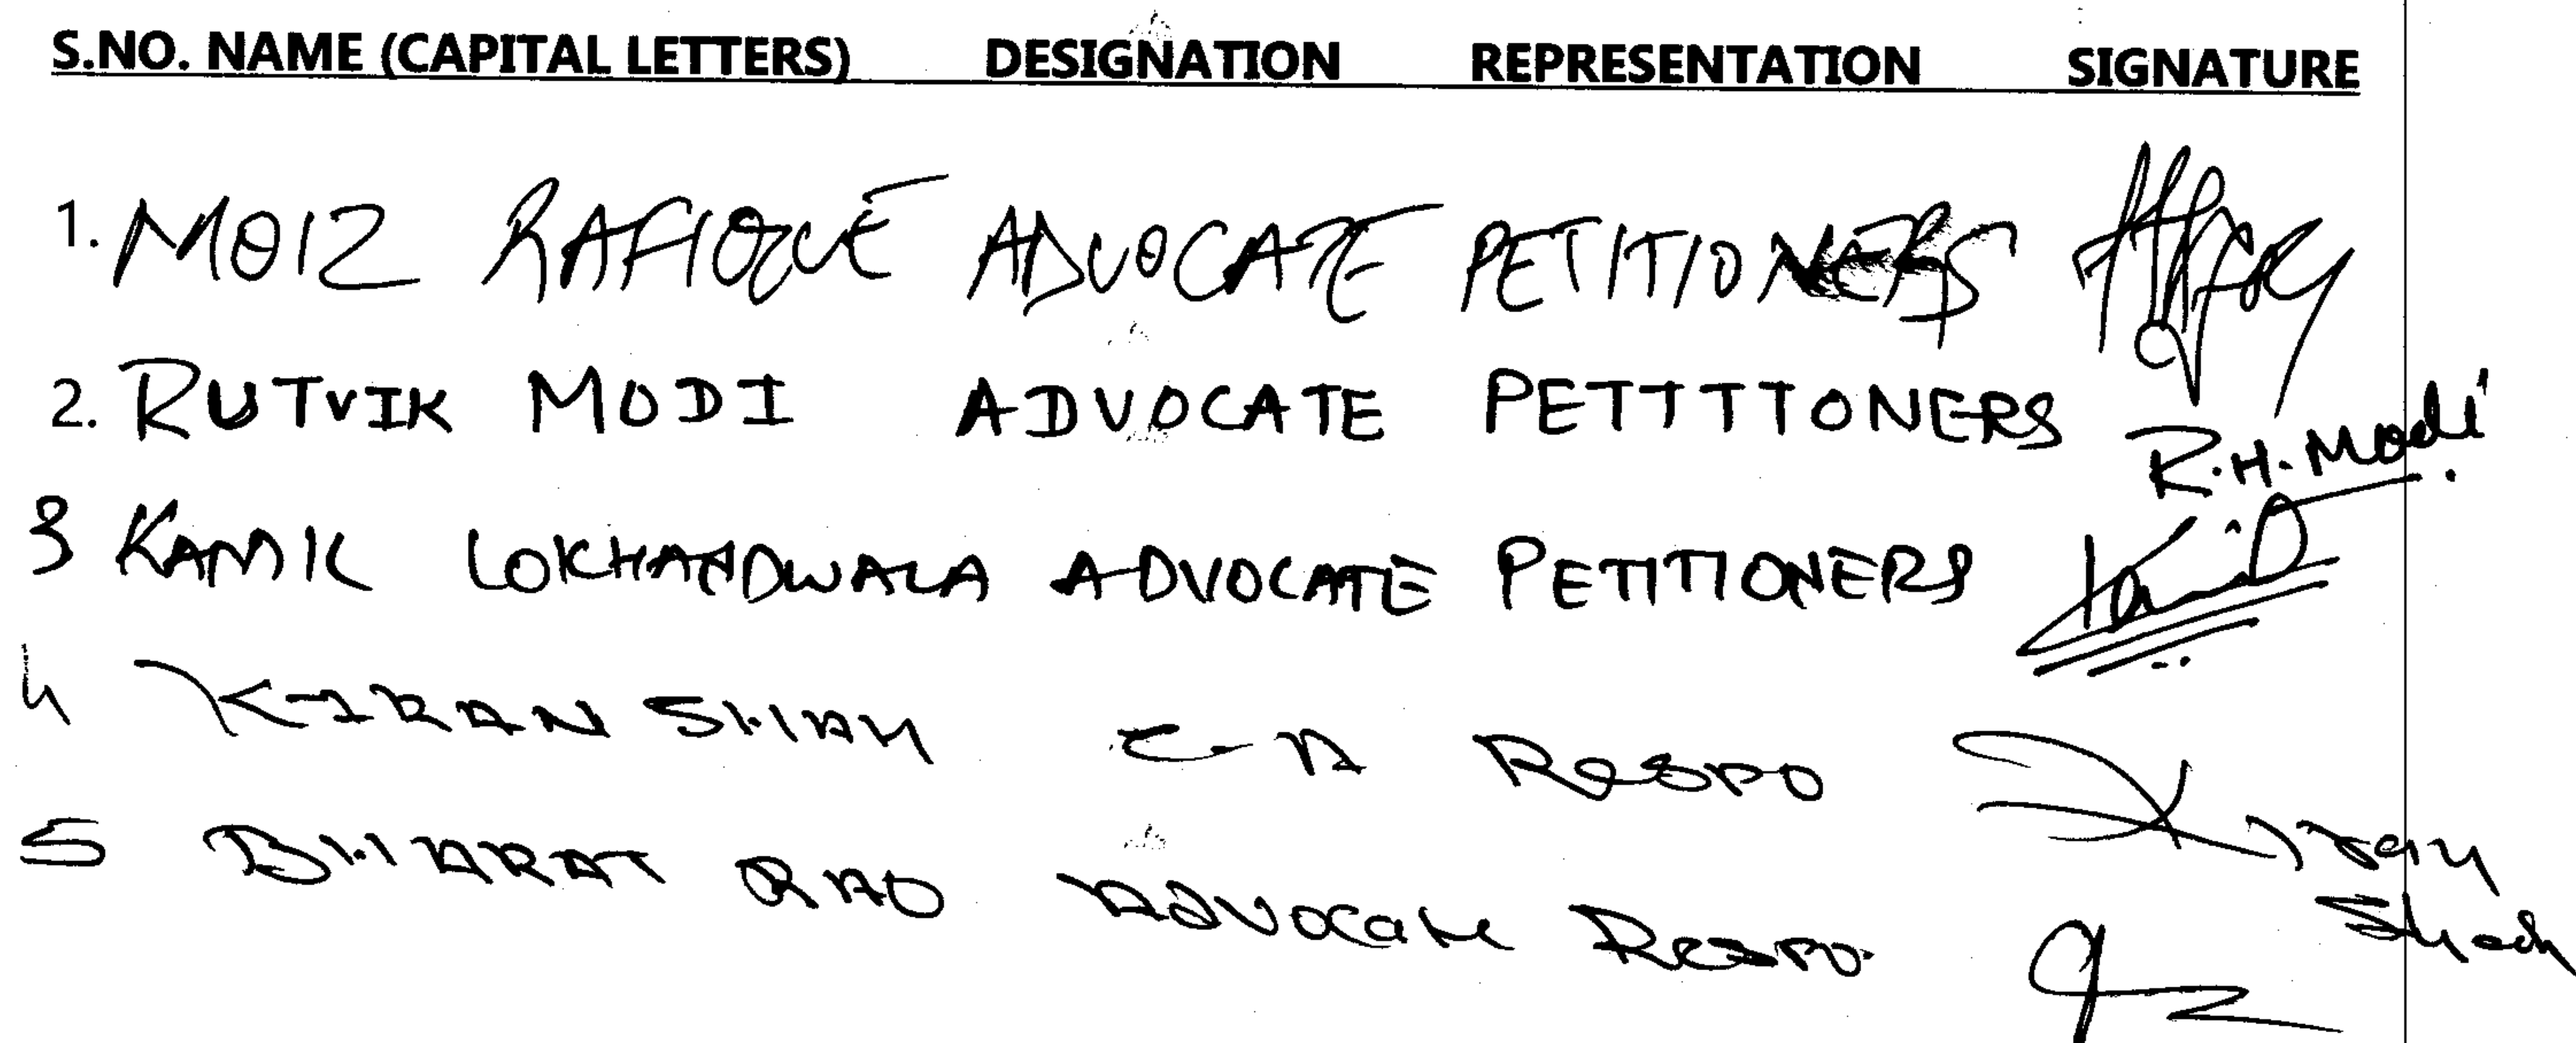 S.NO. NAME (CAPITAL LETTERS) DESIGNATION REPRESENTATION SIGNATURE
1. MOIZ RAFIQUE ADVOCATE PETITIONERS
2. RUTVIK MODI ADVOCATE PETITIONERS R.H.Modi
3 KAMIL LOKHANDWALA ADVOCATE PETITIONERS
4 KIRAN SHAH C A RESPO Kiran Shah
5 BHARAT RAO Advocate Respo.